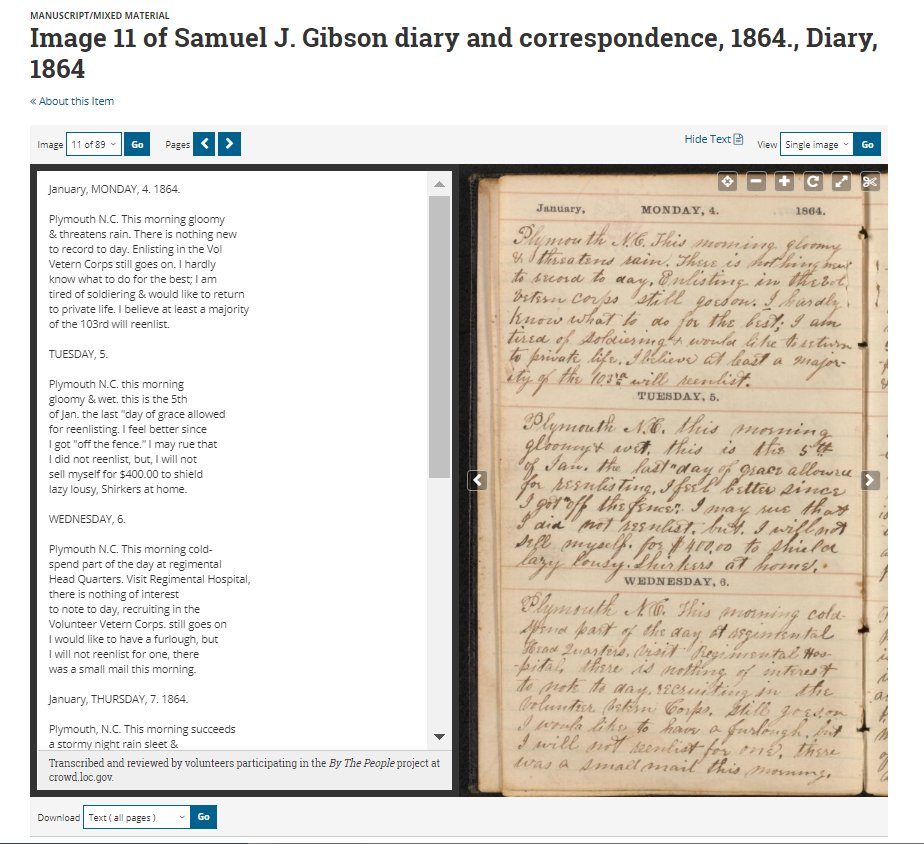 MANUSCRIPT/MIXED MATERIAL
Image 11 of Samuel J. Gibson diary and correspondence, 1864., Diary,
1864
« About this Item
Image 11 of 89 Go Pages Hide Text View Single image Go
January, MONDAY, 4. 1864.
Plymouth N.C. This morning gloomy
& threatens rain. There is nothing new
to record to day. Enlisting in the Vol
Vetern Corps still goes on. I hardly
know what to do for the best; I am
tired of soldiering & would like to return
to private life. I believe at least a majority
of the 103rd will reenlist.
TUESDAY, 5.
Plymouth N.C. this morning
gloomy & wet. this is the 5th
of Jan. the last "day of grace allowed
for reenlisting. I feel better since
I got "off the fence." I may rue that
I did not reenlist, but, I will not
sell myself for $400.00 to shield
lazy lousy, Shirkers at home.
WEDNESDAY, 6.
Plymouth N.C. This morning cold-
spend part of the day at regimental
Head Quarters. Visit Regimental Hospital,
there is nothing of interest
to note to day, recruiting in the
Volunteer Vetern Corps. still goes on
I would like to have a furlough, but
I will not reenlist for one, there
was a small mail this morning.
January, THURSDAY, 7. 1864.
Plymouth, N.C. This morning succeeds
a stormy night rain sleet &
Transcribed and reviewed by volunteers participating in the By The People project at
crowd.loc.gov.
January, MONDAY, 4. 1864.
Plymouth N.C. This morning gloomy
& threatens rain. There is nothing new
to record to day. Enlisting in the Vol
Vetern Corps still goes on. I hardly
know what to do for the best; I am
tired of soldiering & would like to return
to private life. I believe at least a major-
ity of the 103rd will reenlist.
TUESDAY, 5.
Plymouth N.C. this morning
gloomy & wet. this is the 5th
of Jan. the last "day of grace allowed
for reenlisting. I feel better since
I got "off the fence." I may rue that
I did not reenlist, but, I will not
sell myself for $400.00 to shield
lazy lousy, Shirkers at home.
WEDNESDAY, 6.
Plymouth N.C. This morning cold-
spend part of the day at regimental
Head Quarters. Visit Regimental Hos-
pital, there is nothing of interest
to note to day. recruiting in the
Volunteer Vetern Corps. still goes on
I would like to have a furlough, but
I will not reenlist for one, there
was a small mail this morning.
Download Text ( all pages ) Go